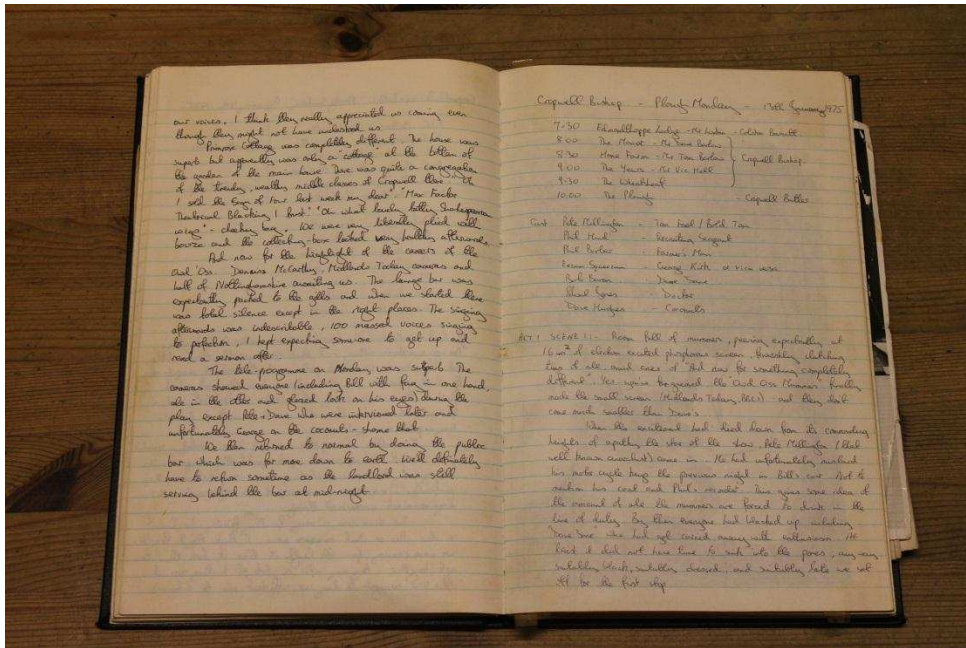 our voices, I think they really appreciated us coming even
though they might not have understood us.
Primrose Cottage was completely different. The house was
superb but apparently was only a "cottage" at the bottom of
the garden of the main house. There was quite a congregation
of the trendy, wealthy middle classes of Cropwell there. "Oh
I sold the Sign of Four last week my dear". "Max Factor
Theatrical Blacking I trust". "Oh what lovely Shakespearian
wigs" - cheeky bug. We were very liberally plied with
booze and the collecting-box looked very healthy afterwards.
And now for the highlight of the careers of the
Owd 'Oss. Dennis McCarthy, Midlands Today cameras and
half of Nottinghamshire awaiting us. The lounge bar was
expectantly packed to the gills and when we started there
was total silence except in the right places. The singing
afterwards was indescribable, 100 massed voices singing
to perfection, I kept expecting someone to get up and
read a sermon after.
The tele-programme on Monday was superb. The
cameras showed everyone (including Bill with fag in one hand,
ale in the other and glazed look on his eyes) during the
play except Pete + Dave who were interviewed later and
unfortunately George on the coconuts - shame that.
We then returned to normal by doing the public
bar which was far more down to earth. Well definitely
have to return sometime as the landlord was still
serving behind the bar at mid-night.
Cropwell Bishop - Plough Monday - 13th January 1975
7.30 Edwalthorpe Lodge - Colston Bassett
8.00 The Manor - Mr Barlow
8.30 Home Farm - Mr Tom Barlow Cropwell Bishop
9.00 The Yews - Mr Vic Hall
9.30 The Wheatsheaf
10.00 The Plough - Cropwell Butler
Cast Pete Millington - Tom Fool / Bold Tom
Phil - Recruiting Sergeant
Phil Barber - Farmer's Man
Brian - George Kirk or vice versa
Bill - Dame Jane
- Doctor
Dave Hughes - Coconuts
ACT 1 SCENE 1:- Room full of mummers, peering expectantly at
16 cm² of electron excited phosphorus screen, clutching
tins of ale, amid cries of "And now for something completely
different". Yes, the Owd Oss Mummers finally
made the small screen (Midlands Today, BBC1) - and they don't
come much smaller than Dave's.
When the excitement had died down from its
heights of apathy the star of the show Pete Millington (that
well known anarchist) came in. He had unfortunately mislaid
his motor cycle bung the previous night in Bill's car. Not to
mention his coat and Phil's recorder. This gives some idea of
the amount of ale the mummers are forced to drink in the
line of duty. By then everyone had blacked up including
Dame Jane who had got carried away with enthusiasm. At
least it did not have time to sink into the pores, anyway
suitably black, suitably dressed, and suitably late we set
off for the first stop.